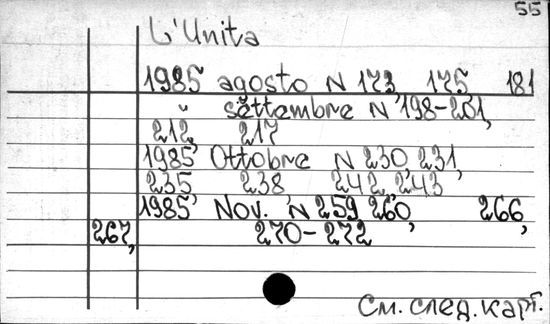 55
L'Unita
1985 agosto N 173, 175 181
" settembre N 198-201,
212, 217
1985 Ottobre N 230, 231,
235 238 242, 243
1985 Nov. N 259 260, 266,
267, 270-272
См. след. карт.